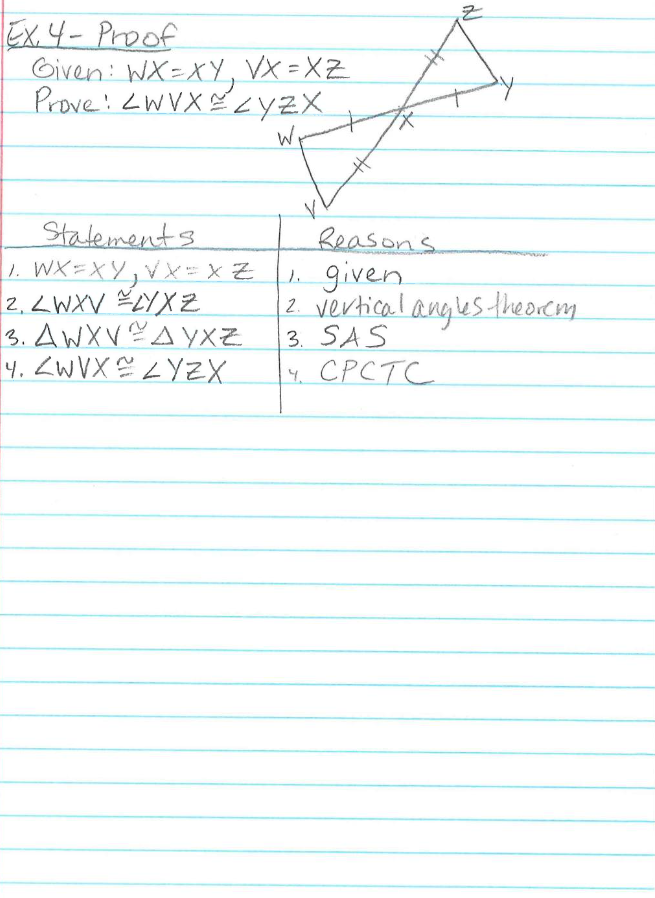 Ex. 4 - Proof
Given: WX = XY, VX = XZ
Prove: ∠WVX ≅ ∠YZX
Z
Y
X
W
V
Statements
Reasons
1. WX = XY, VX = XZ
1. given
2. ∠WXV ≅ ∠YXZ
2. vertical angles theorem
3. △WXV ≅ △YXZ
3. SAS
4. ∠WVX ≅ ∠YZX
4. CPCTC